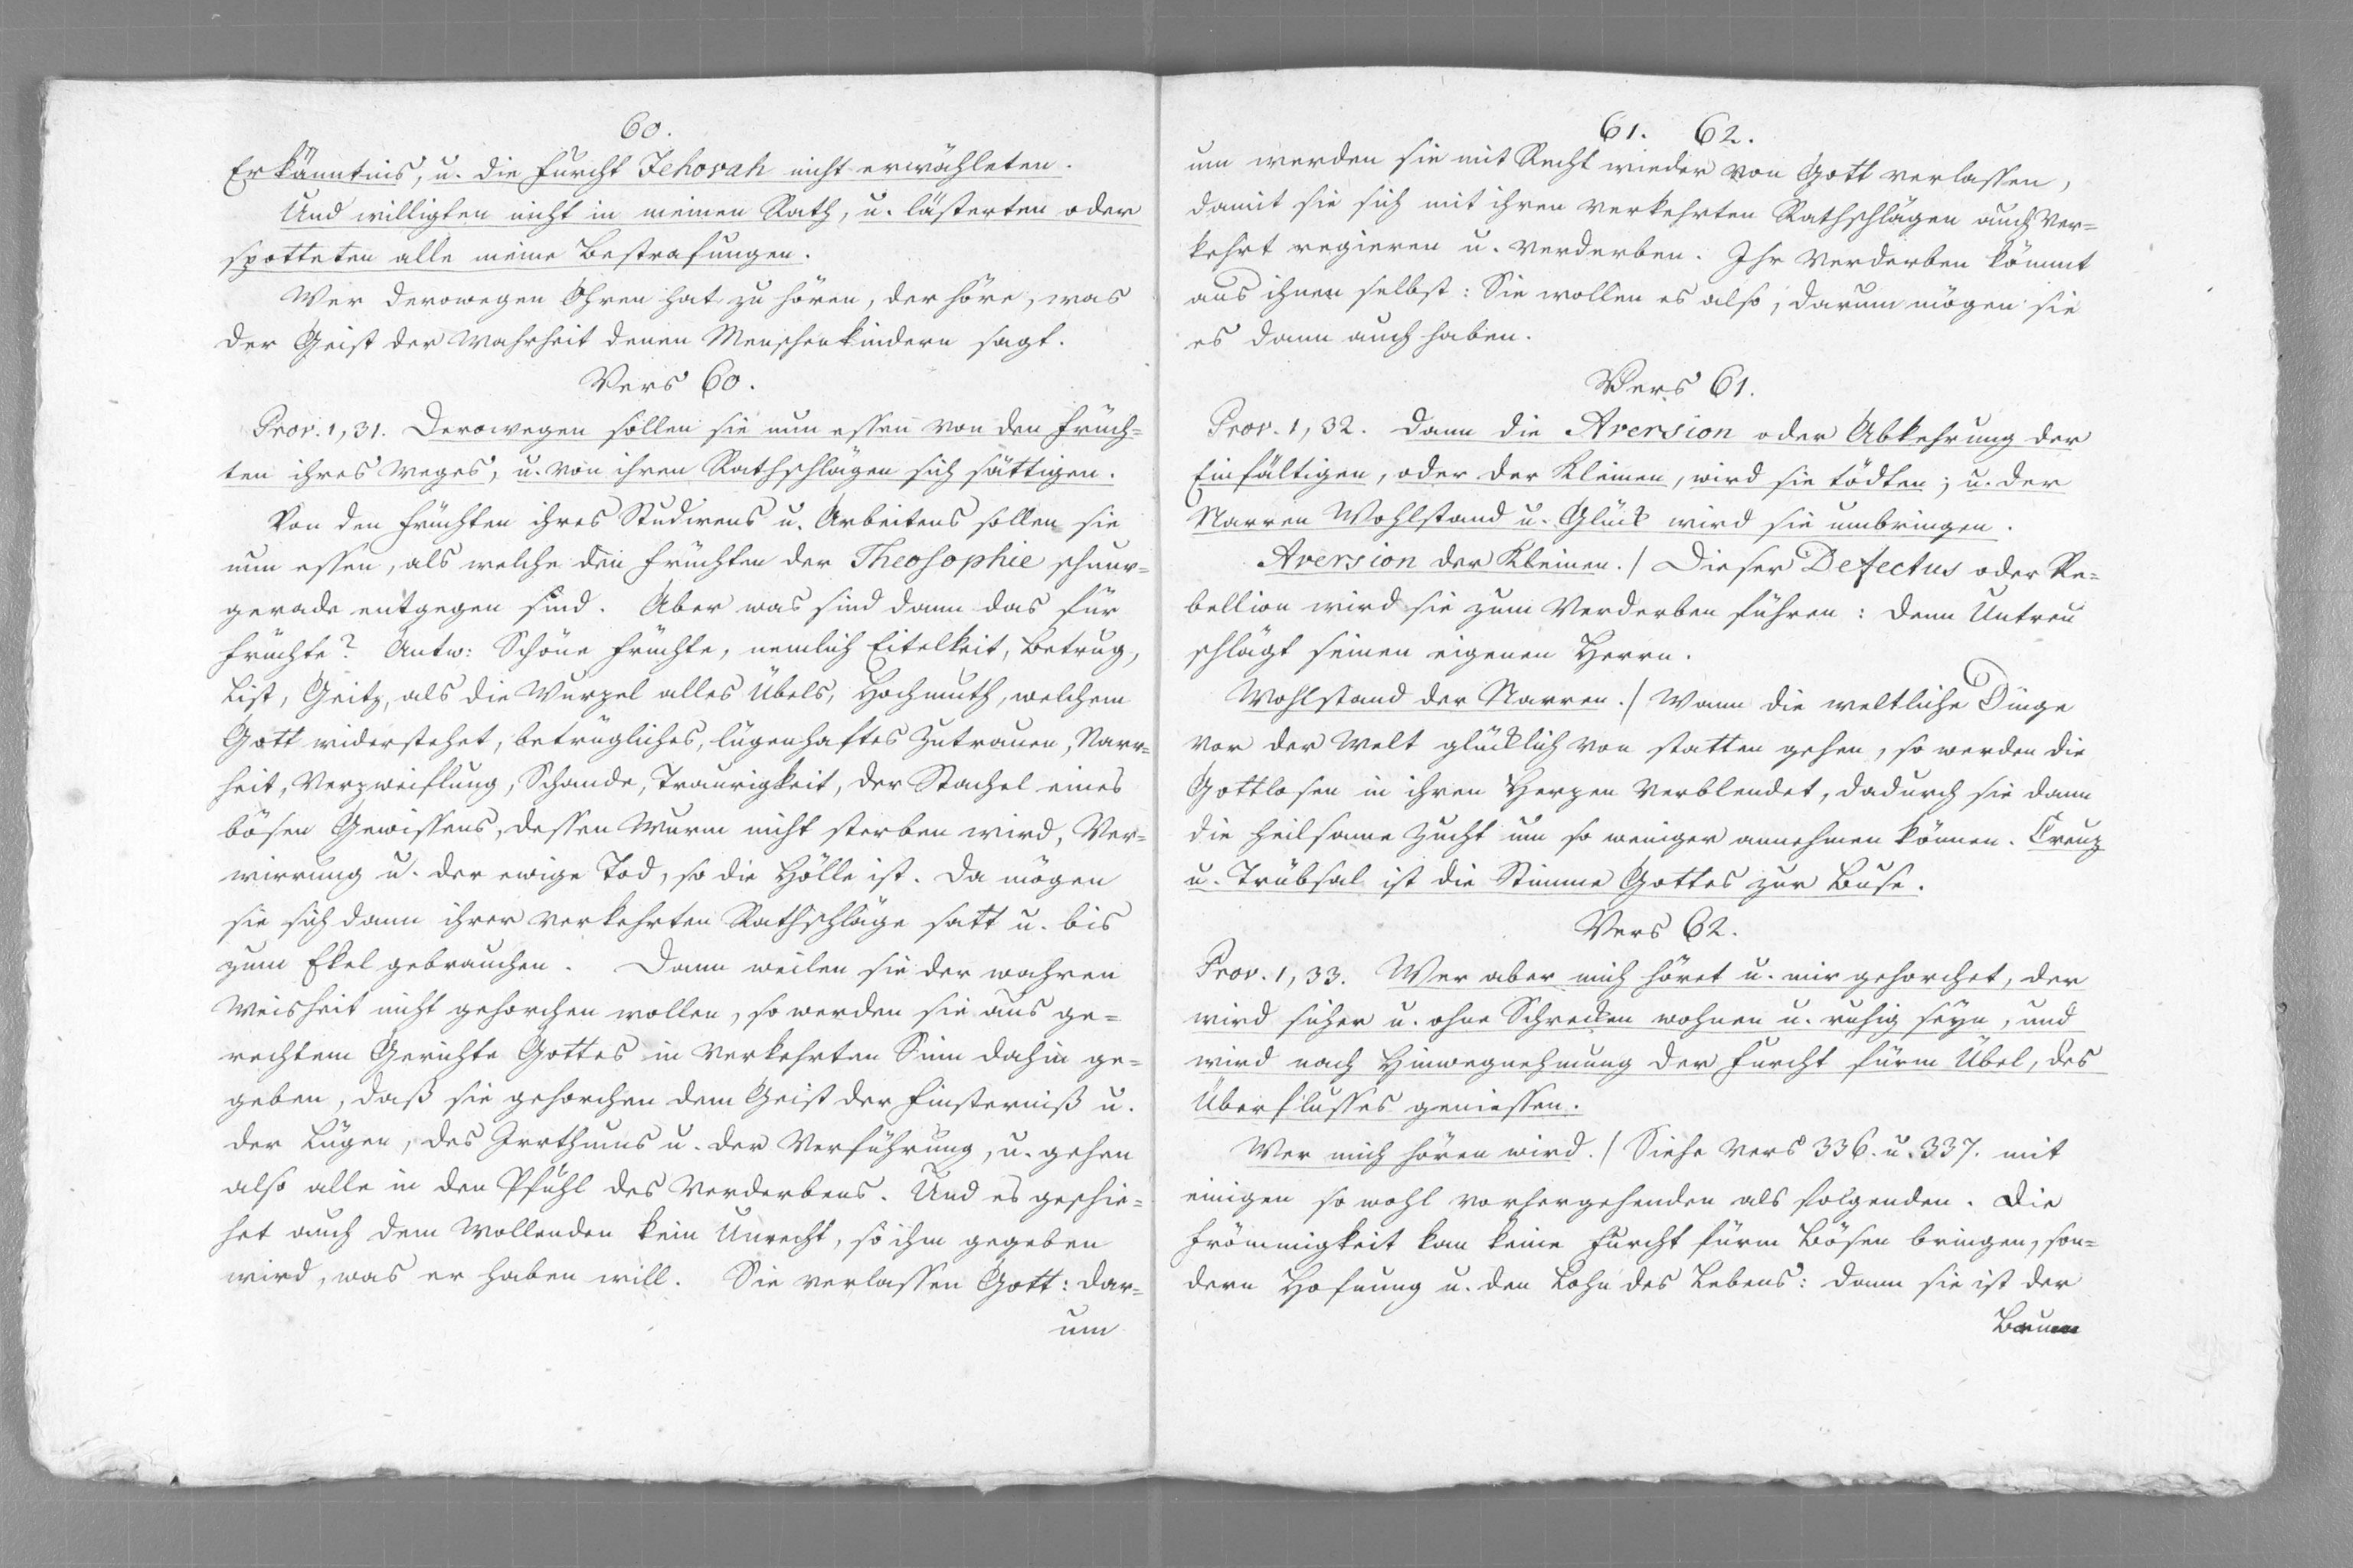 60.
Erkänntnis, u. die Furcht Jehovah nicht erwähleten.
Und willigten nicht in meinen Rath, u. lästerten oder
spotteten alle meine Bestrafungen.
Wer derowegen Ohren hat zu hören, der höre, was
der Geist der Wahrheit denen Menschenkindern sagt.
Vers 60.
Prov. 1, 31. Derowegen sollen sie nun essen von den Früch=
ten ihres Weges, u. von ihren Rathschlägen sich sättigen.
Von den Früchten ihres Studirens u. Arbeitens sollen sie
nun essen, als welche den Früchten der Theosophie schnur=
gerade entgegen sind. Aber was sind dann das für
Früchte? Antw: Schöne Früchte, nemlich Eitelkeit, Betrug,
List, Geitz, als die Wurzel alles Übels, Hochmuth, welchem
Gott widerstehet, betrügliches, lügenhaftes Zutrauen, Narr=
heit, Verzweiflung, Schande, Traurigkeit, der Stachel eines
bösen Gewissens, dessen Wurm nicht sterben wird, Ver=
wirrung u. der ewige Tod, so die Hölle ist. Da mögen
sie sich dann ihrer verkehrten Rathschläge satt u. bis
zum Ekel gebrauchen. Dann weilen sie der wahren
Weisheit nicht gehorchen wollen, so werden sie aus ge=
rechtem Gerichte Gottes in verkehrten Sinn dahin ge=
geben, daß sie gehorchen dem Geist der Finsterniß u.
der Lügen, des Irrthums u. der Verführung, u. gehen
also alle in den Pfuhl des Verderbens. Und es geschie=
het auch dem Wollenden kein Unrecht, so ihm gegeben
wird, was er haben will. Sie verlassen Gott: dar=
um
61. 62.
um werden sie mit Recht wieder von Gott verlassen,
damit sie sich mit ihren verkehrten Rathschlägen auch ver=
kehrt regieren u. verderben. Ihr Verderben kömmt
aus ihnen selbst: Sie wollen es also, darum mögen sie
es dann auch haben.
Vers 61.
Prov. 1, 32. Dann die Aversion oder Abkehrung der
Einfältigen, oder der Kleinen, wird sie tödten; u. der
Narren Wohlstand u. Glück wird sie umbringen.
Aversion der Kleinen./ Dieser Defectus oder Re=
bellion wird sie zum Verderben führen: denn Untreu
schlägt seinen eigenen Herrn.
Wohlstand der Narren./ Wann die weltliche Dinge
vor der Welt glücklich von statten gehen, so werden die
Gottlosen in ihren Herzen verblendet, dadurch sie dann
die heilsame Zucht um so weniger annehmen können. Creuz
u. Trübsal ist die Stimme Gottes zur Buse.
Vers 62.
Prov. 1, 33. Wer aber mich höret u. mir gehorchet, der
wird sicher u. ohne Schrecken wohnen u. ruhig seyn, und
wird nach Hinwegnehmung der Furcht fürm Übel, des
Überflusses geniessen.
Wer mich hören wird./ Siehe Vers 336. u. 337. mit
einigen so wohl vorhergehenden als folgenden. Die
Frömmigkeit kan keine Furcht fürm Bösen bringen, son=
dern Hofnung u. den Lohn des Lebens: dann sie ist der
Baum